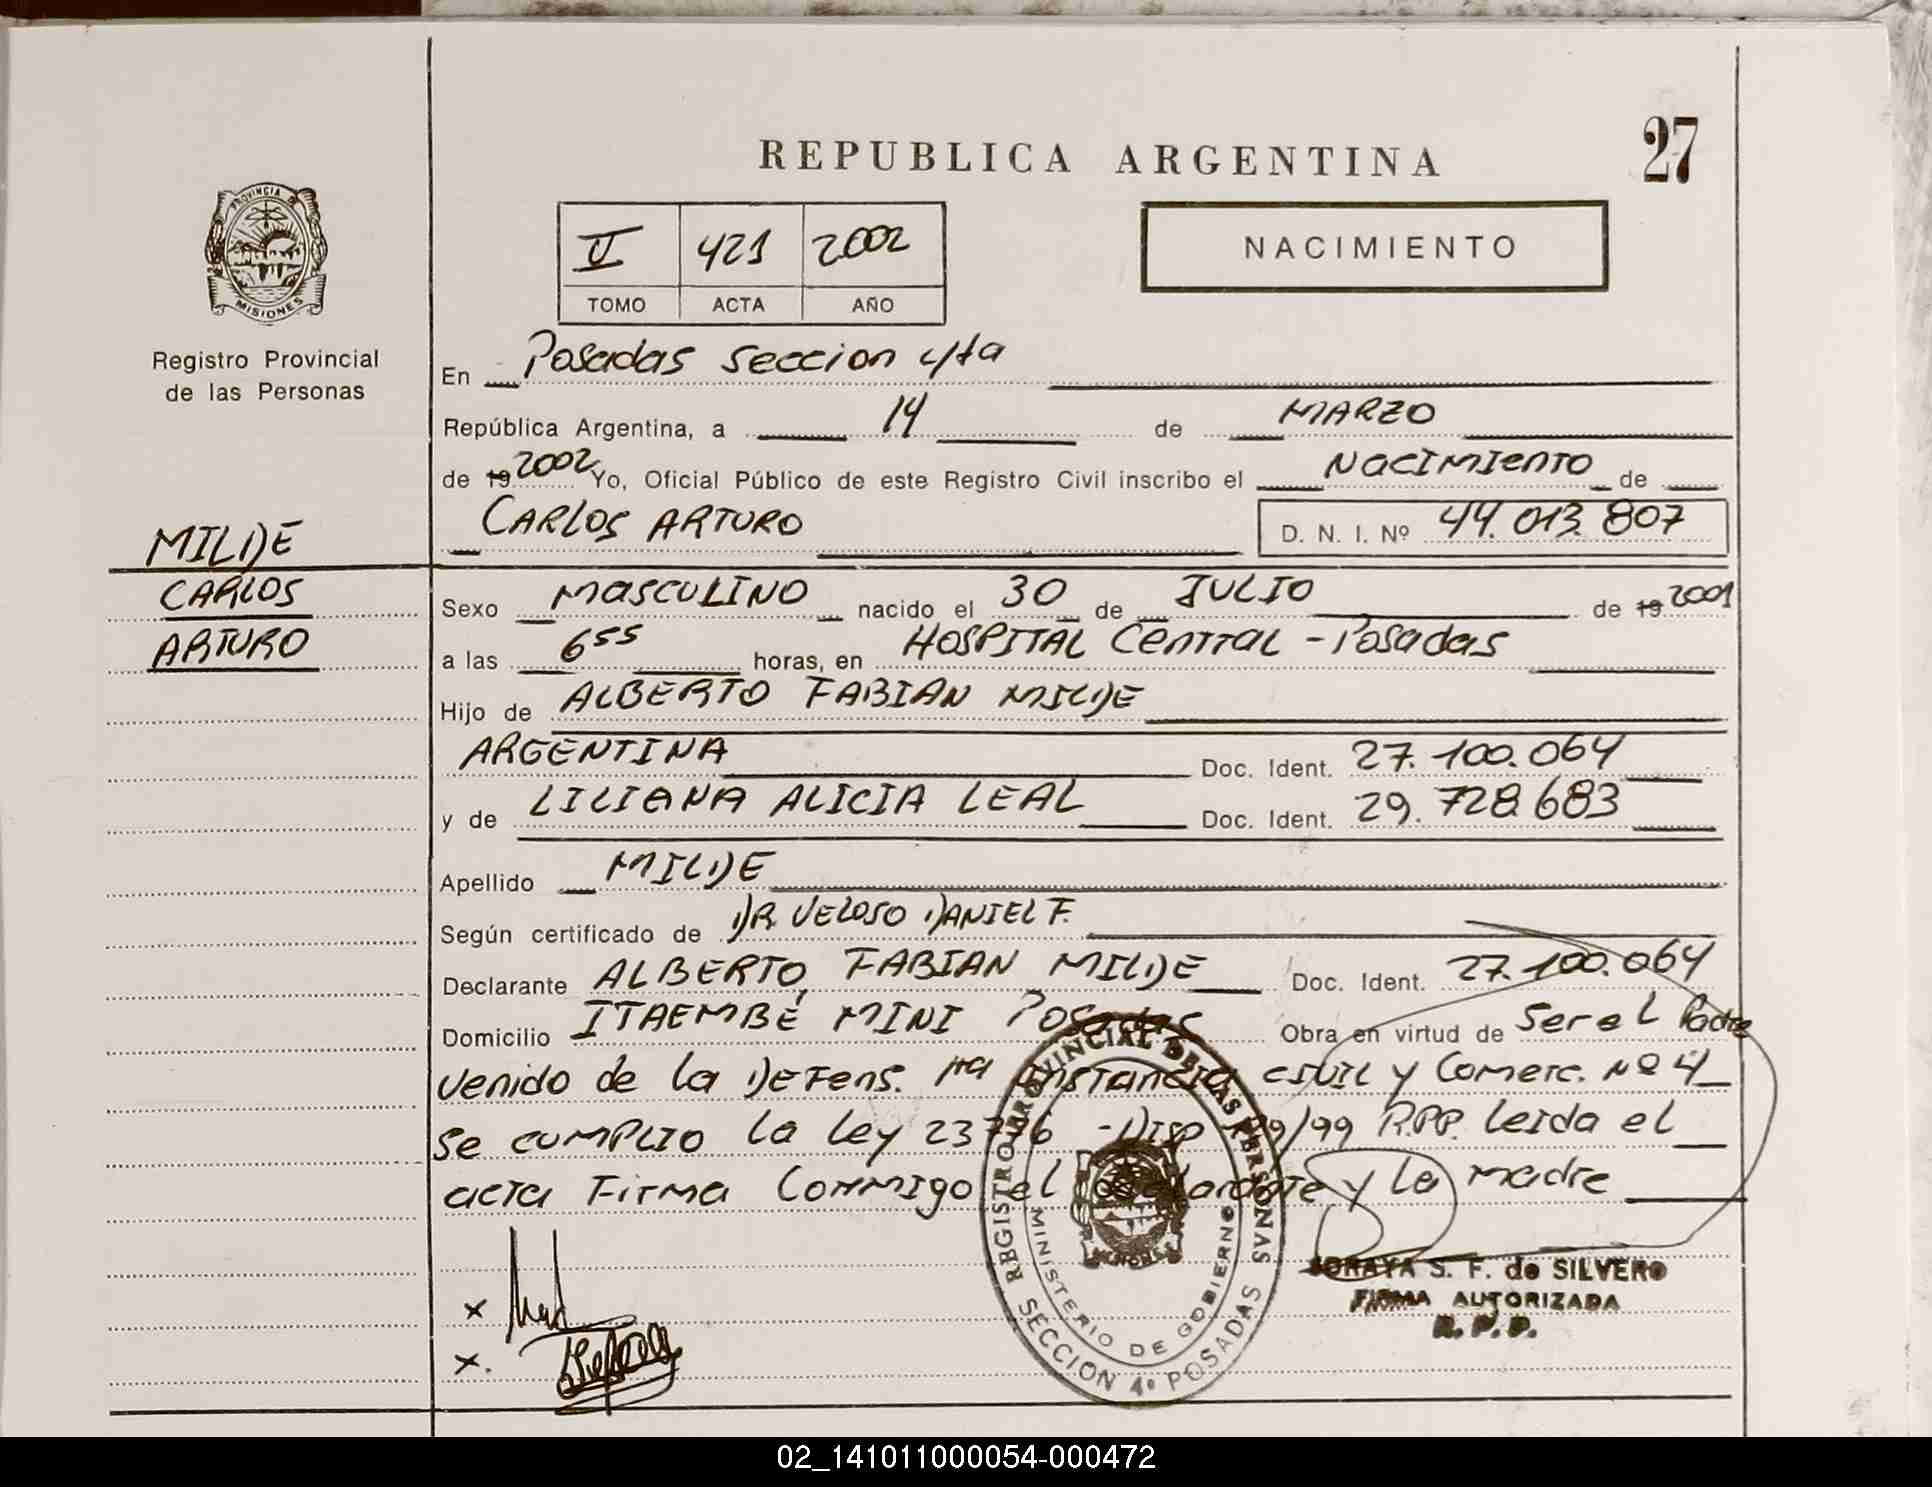 27
REPUBLICA ARGENTINA
PROVINCIA DE
MISIONES
Registro Provincial
de las Personas
II 421 2002
TOMO ACTA AÑO
NACIMIENTO
En Posadas seccion 4ta
República Argentina, a 14 de MARZO
de 19 2002 Yo, Oficial Público de este Registro Civil inscribo el Nacimiento de
CARLOS ARTURO D. N. I. Nº 44.013.807
MILDE
CARLOS
ARTURO
Sexo MASCULINO nacido el 30 de JULIO de 19 2001
a las 6 55 horas, en HOSPITAL CENTRAL - Posadas
Hijo de ALBERTO FABIAN MILDE
ARGENTINA Doc. Ident. 27.100.064
y de LILIANA ALICIA LEAL Doc. Ident. 29.728.683
Apellido MILDE
Según certificado de DR. VELOSO DANIEL F.
Declarante ALBERTO FABIAN MILDE Doc. Ident. 27.100.064
Domicilio ITAEMBÉ MINI Posadas Obra en virtud de Ser el Padre
venido de la DEFens. 1ra instancia CIVIL y Comerc. Nº 4
Se CUMPLIO la Ley 23776 - Disp /99 R.P.P. leida el
acta Firma Conmigo el declarante y la madre
REGISTRO PROVINCIAL DE LAS PERSONAS
MINISTERIO DE GOBIERNO
SECCION 4º POSADAS
MISIONES
SORAYA S. F. de SILVERO
FIRMA AUTORIZADA
R. P. P.
x
x.
02_141011000054-000472